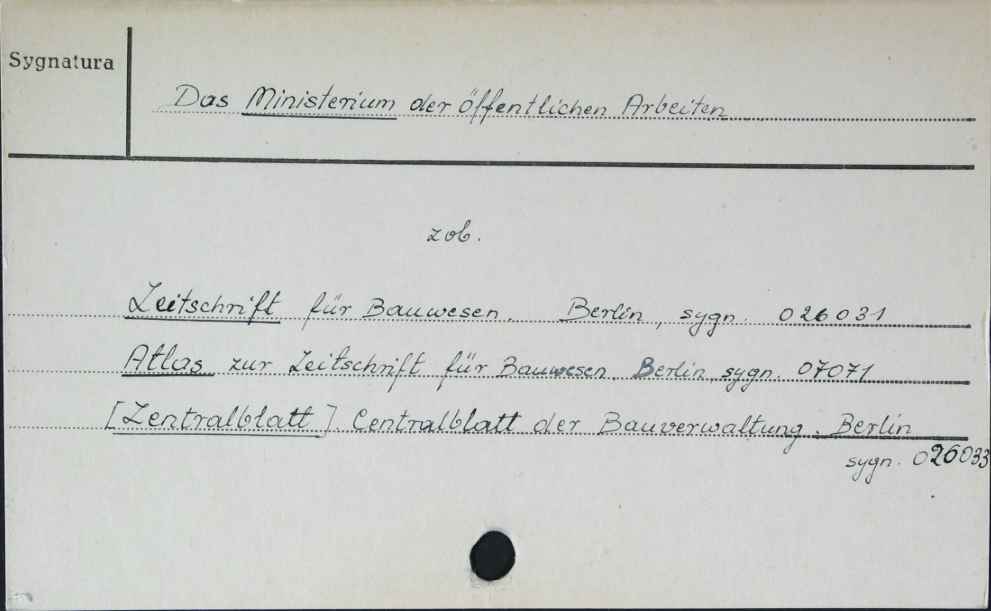 Sygnatura
Das Ministerium der öffentlichen Arbeiten
zob.
Zeitschrift für Bauwesen. Berlin, sygn. 026031
Atlas zur Zeitschrift für Bauwesen. Berlin, sygn. 07071
[Zentralblatt] Centralblatt der Bauverwaltung. Berlin
sygn. 026033